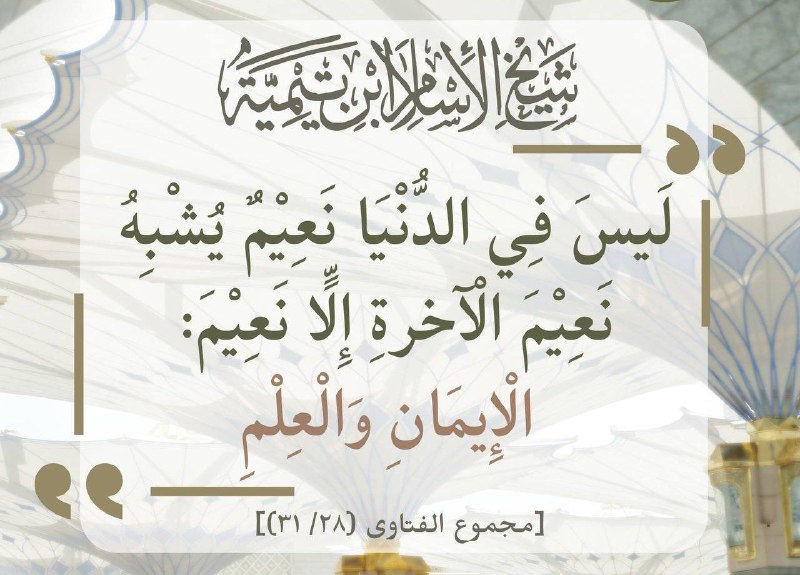 شيخ الإسلام ابن تيمية
لَيسَ فِي الدُّنْيَا نَعِيْمٌ يُشْبِهُ
نَعِيْمَ الْآخرةِ إِلَّا نَعِيْمَ:
الْإِيمَانِ وَالْعِلْمِ
[مجموع الفتاوى (٢٨/ ٣١)]